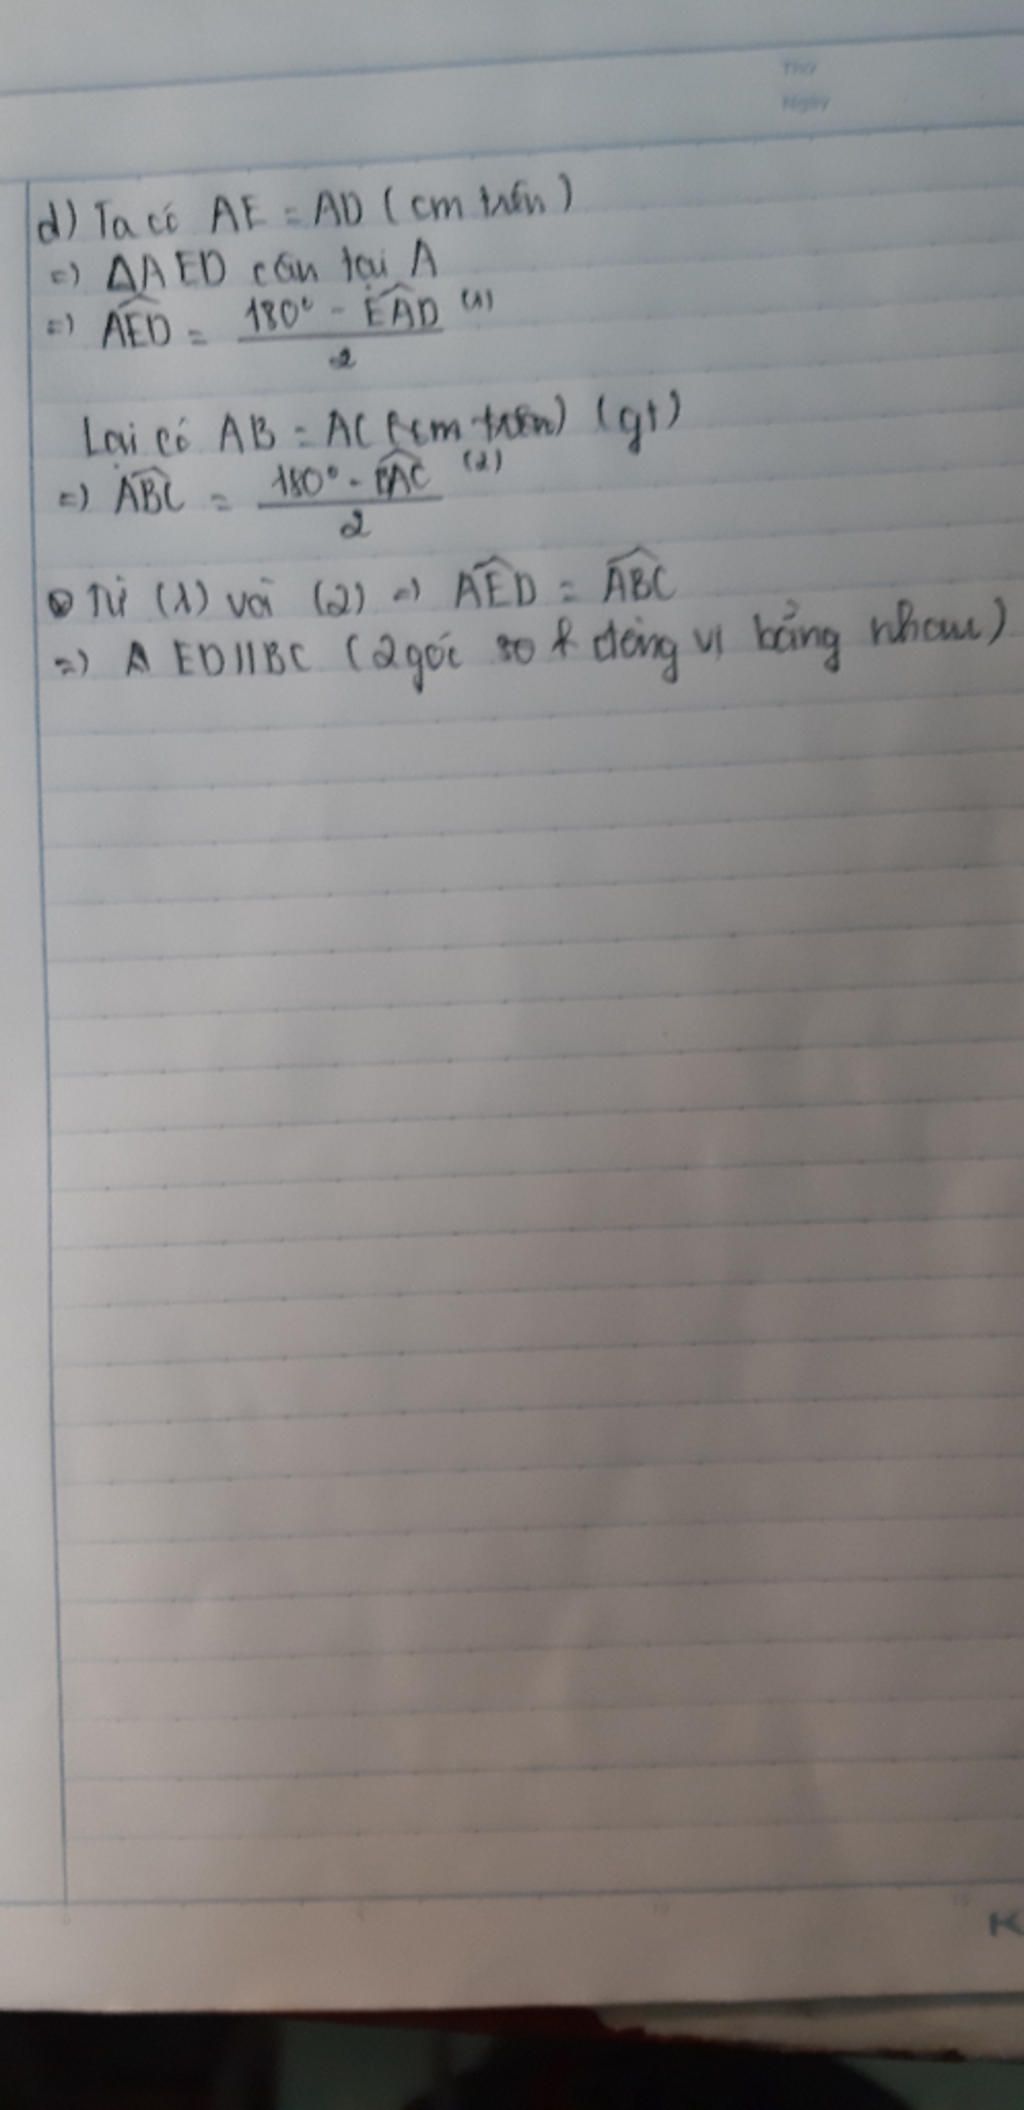 Thứ
Ngày
d) Ta có AE = AD (cm trên)
=) ΔAED cân tại A
=) \widehat{AED} = \frac{180° - \widehat{EAD}}{2} (1)
Lại có AB = AC (cm trên) (gt)
=) \widehat{ABC} = \frac{180° - \widehat{BAC}}{2} (2)
Từ (1) với (2) =) \widehat{AED} = \widehat{ABC}
=) ED//BC (2 góc đồng vị bằng nhau)
0 5 10 15
K